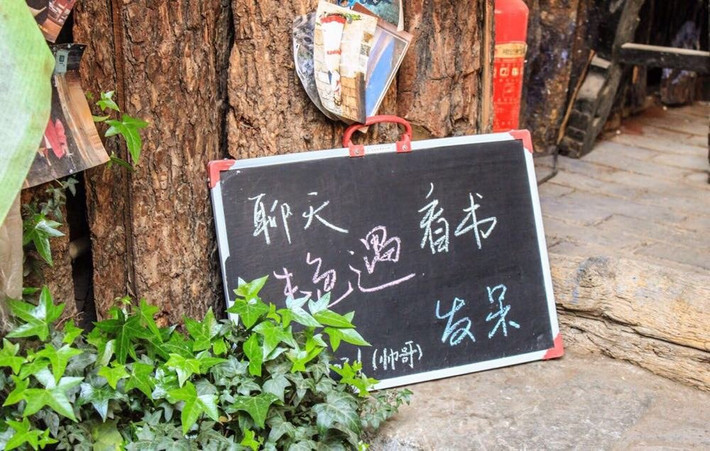 聊天 看书
艳遇
发呆
(帅哥)